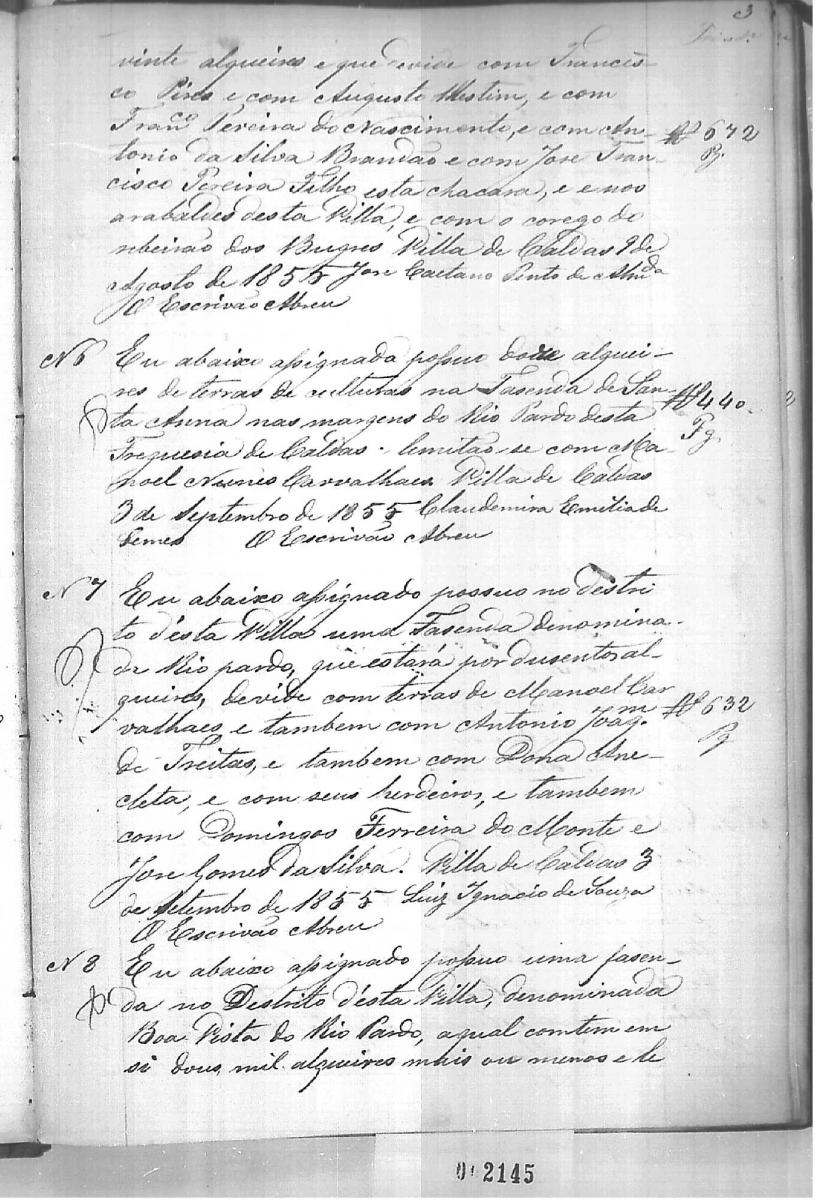 3
vinte alqueires e que devide com Francis-
co Pires e com Augusto Westim, e com
Fran.co Pereira do Nascimento, e com An-
tonio da Silva Brandão e com Jose Fran-
#672
Pg.
cisco Pereira Filho esta chacara, e e nos
arabaldes desta Villa, e com o corego do
ribeirão dos Bugres Villa de Caldas 9 de
Agosto de 1855 Jose Caetano Pinto de Almda
O Escrivão Abreu
N 6 Eu abaixo assignada possuo doze alquei-
res de terras de culturas na Fasenda de San-
ta Anna nas margens do Rio Pardo desta
#440
Pg.
Freguesia de Caldas. lemitão-se com Ma-
noel Nunes Carvalhaes Villa de Caldas
3 de Septembro de 1855 Claudemira Emilia de
Lemes O Escrivão Abreu
N 7 Eu abaixo assignado possuo no destri
to d'ésta Villa uma Fasenda denomina-
da Rio pardo, que estará por dusentos al-
queires, devide com terras de Manoel Car
valhaes, e tambem com Antonio Joaq.m
#632
Pg
de Freitas, e tambem com Dona Ane-
cleta, e com seus herdeiros, e tambem
com Domingos Ferreira do Monte e
Jose Gomes da Silva. Villa de Caldas 3
de setembro de 1855 Luiz Ignacio de Souza
O Escrivão Abreu
N 8 Eu abaixo assignado possuo uma fasen-
da no Destrito d'ésta Villa, denominada
Boa Vista do Rio Pardo, a qual comtem em
si dous mil alqueires mais ou menos e le
2145